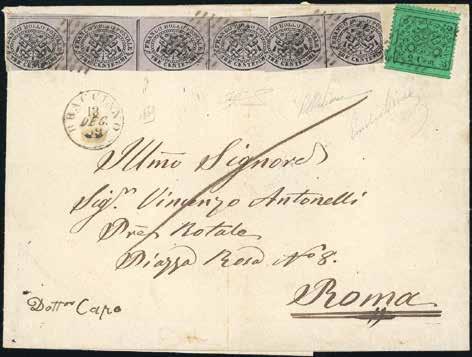 FRANCO BOLLO POSTALE
TRE CENTESIMI
FRANCO BOLLO POSTALE
TRE CENTESIMI
FRANCO BOLLO POSTALE
TRE CENTESIMI
FRANCO BOLLO POSTALE
TRE CENTESIMI
FRANCO BOLLO POSTALE
TRE CENTESIMI
FRANCO BOLLO POSTALE
TRE CENTESIMI
2 Cent
BRACCIANO
13
DEC.
Illmo Signore
Sigr. Vincenzo Antonelli
Piazza Rosa No 8.
Roma
Dottor Capo